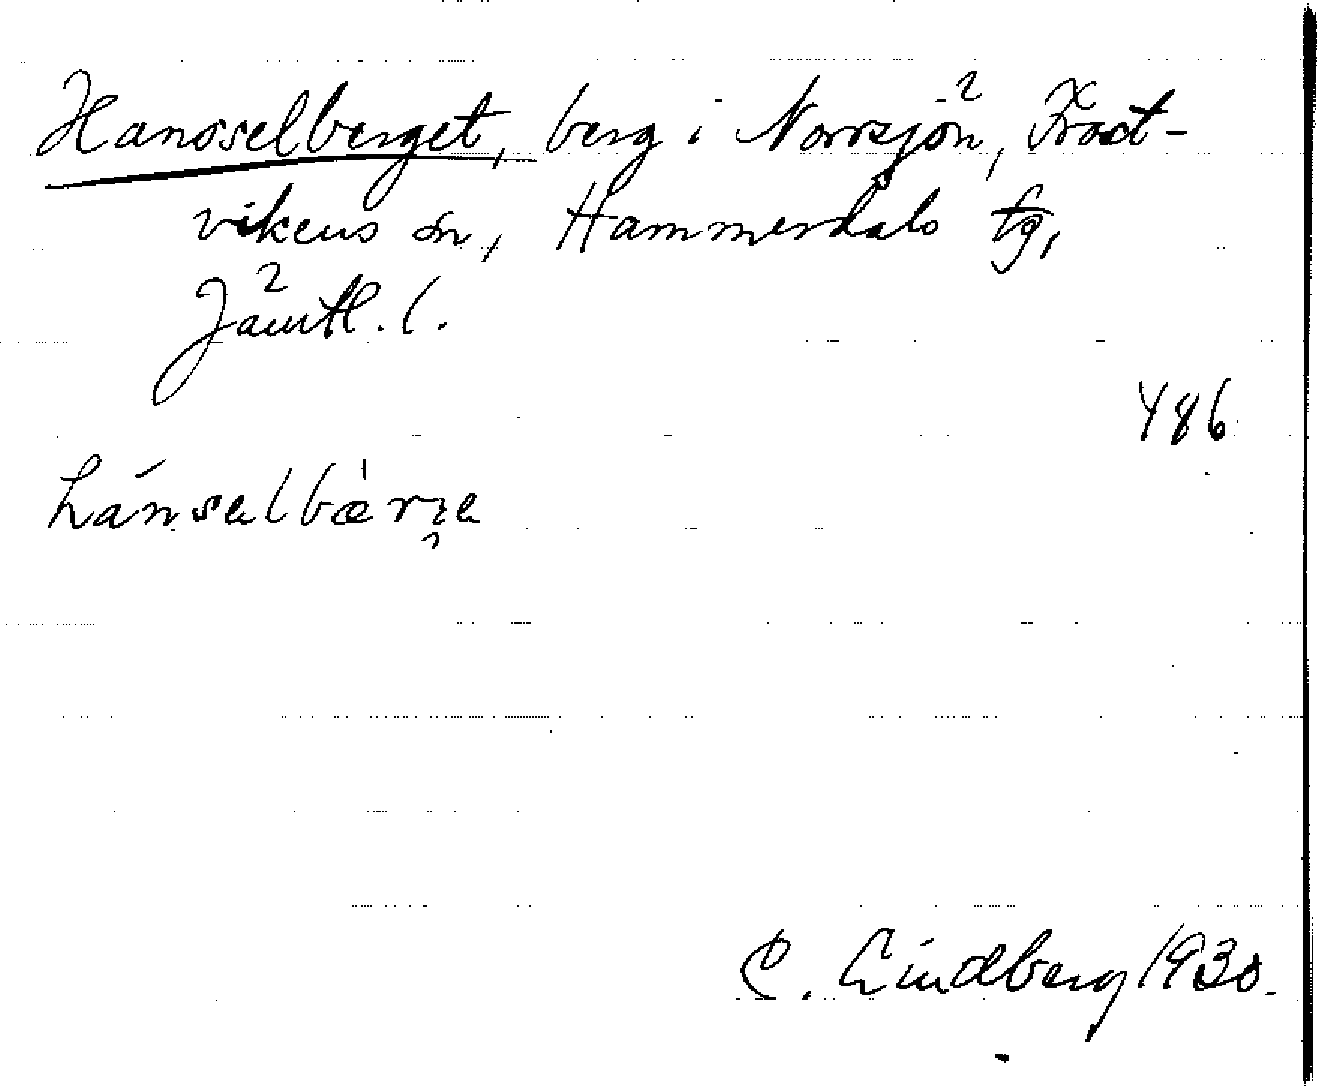 Hansselberget, berg i Norrsjön, Frost-
vikens sn, Hammerdals tg,
Jämtl. l.
486
hánsəlbærjə
C. Lindberg 1930.